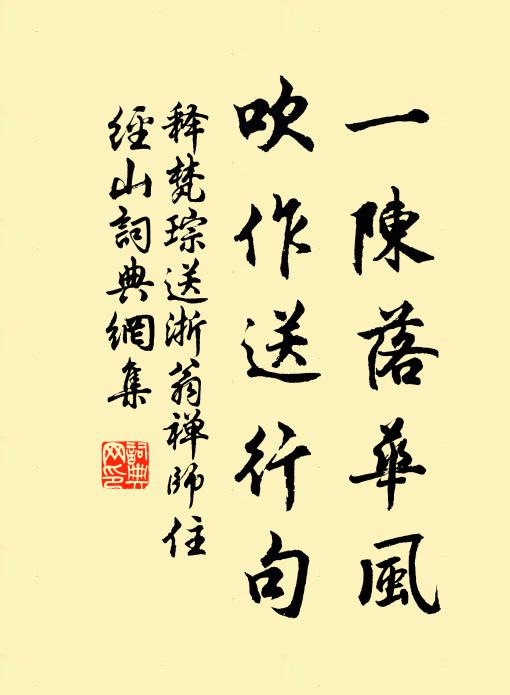 一陳落華風
吹作送行句
释梵琮送浙翁禅師住
經山詞典網集
詞典网印